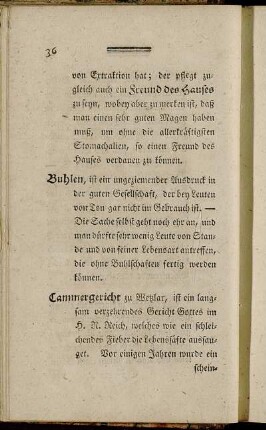 36
von Extraktion hat; der pflegt zu-
gleich auch ein Freund des Hauses
zu seyn, wobey aber zu merken ist, daß
man einen sehr guten Magen haben
muß, um ohne die allerkräftigsten
Stomachalien, so einen Freund des
Hauses verdauen zu können.
Buhlen, ist ein ungeziemender Ausdruck in
der guten Gesellschaft, der bey Leuten
von Ton gar nicht im Gebrauch ist. —
Die Sache selbst geht noch ehr an, und
man dürfte sehr wenig Leute von Stan-
de und von feiner Lebensart antreffen,
die ohne Buhlschaften fertig werden
können.
Cammergericht zu Wetzlar, ist ein lang-
sam verzehrendes Gericht Gottes im
H. R. Reich, welches wie ein schlei-
chendes Fieber die Lebenssäfte aussau-
get. Vor einigen Jahren wurde ein
schein-